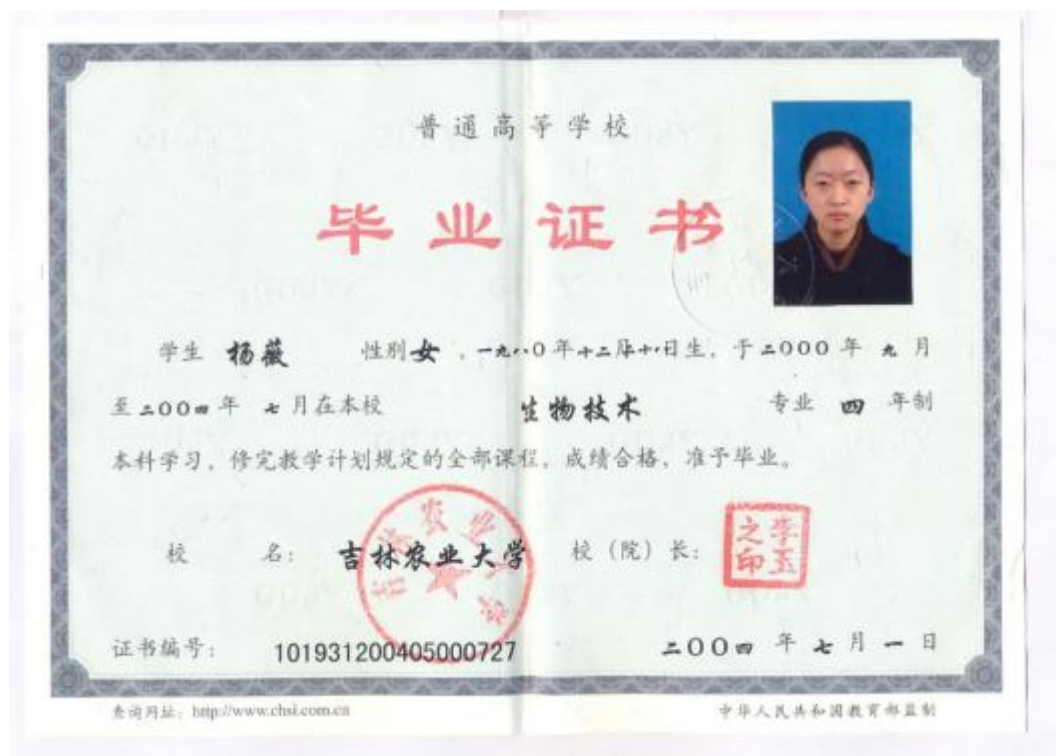 普通高等学校
毕业证书
学生 杨薇 性别 女 ，一九八〇年十二月十八日生，于二〇〇〇年 九 月
至二〇〇四年 七 月在本校 生物技术 专业 四 年制
本科学习，修完教学计划规定的全部课程，成绩合格，准予毕业。
校 名： 吉林农业大学 校（院）长： 李玉之印
证书编号： 101931200405000727 二〇〇四 年 七 月 一 日
查询网址：http://www.chsi.com.cn 中华人民共和国教育部监制